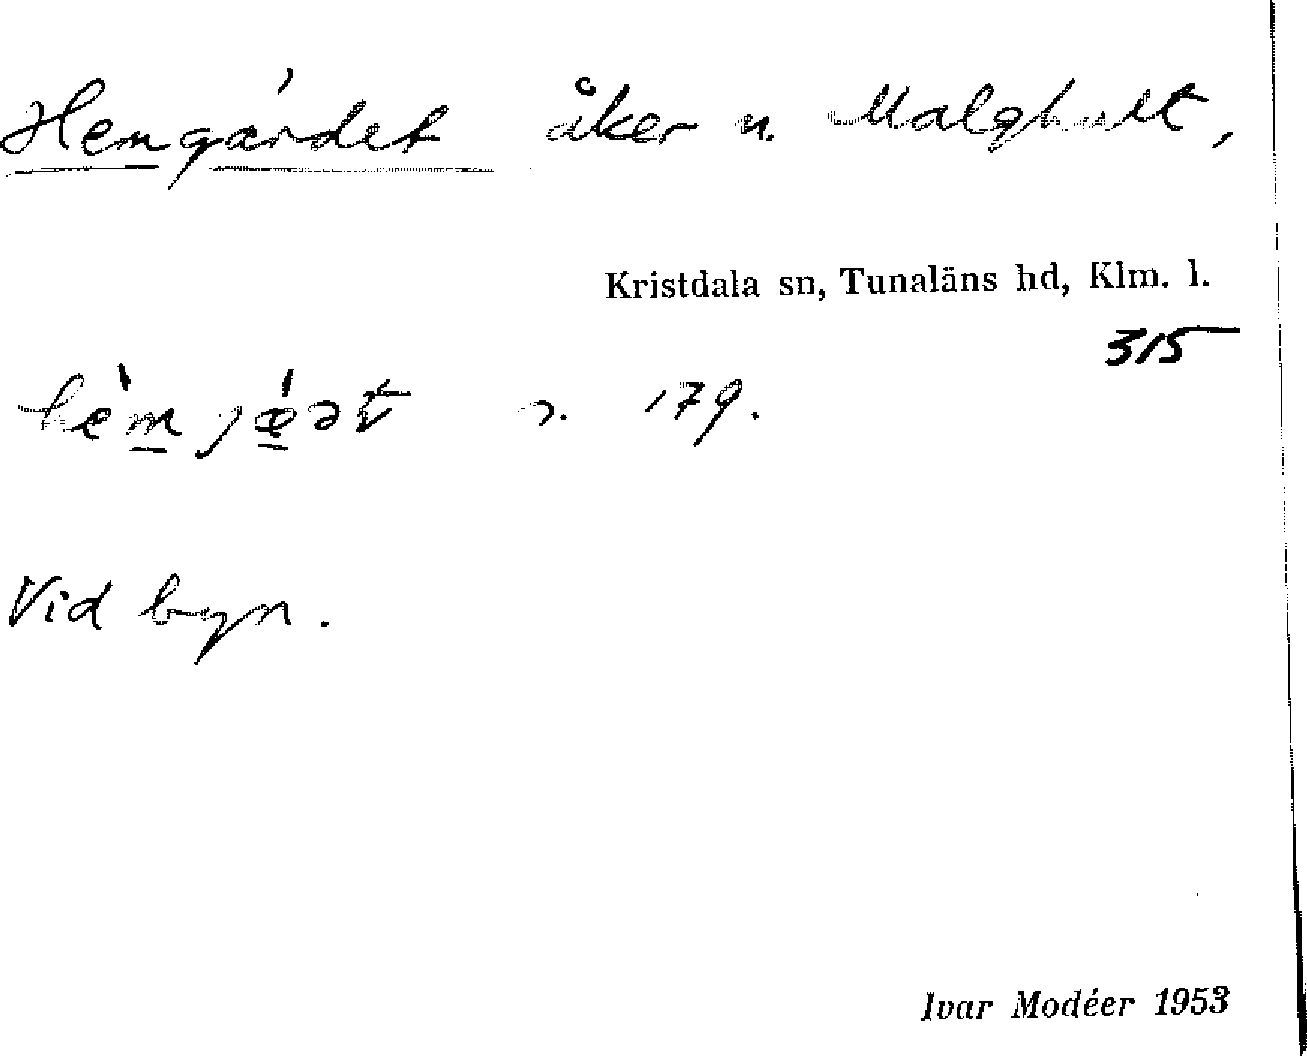 Hemgärdet åker n. Malghult,
Kristdala sn, Tunaläns hd, Klm. l.
315
179.
Vid byn.
Ivar Modéer 1953